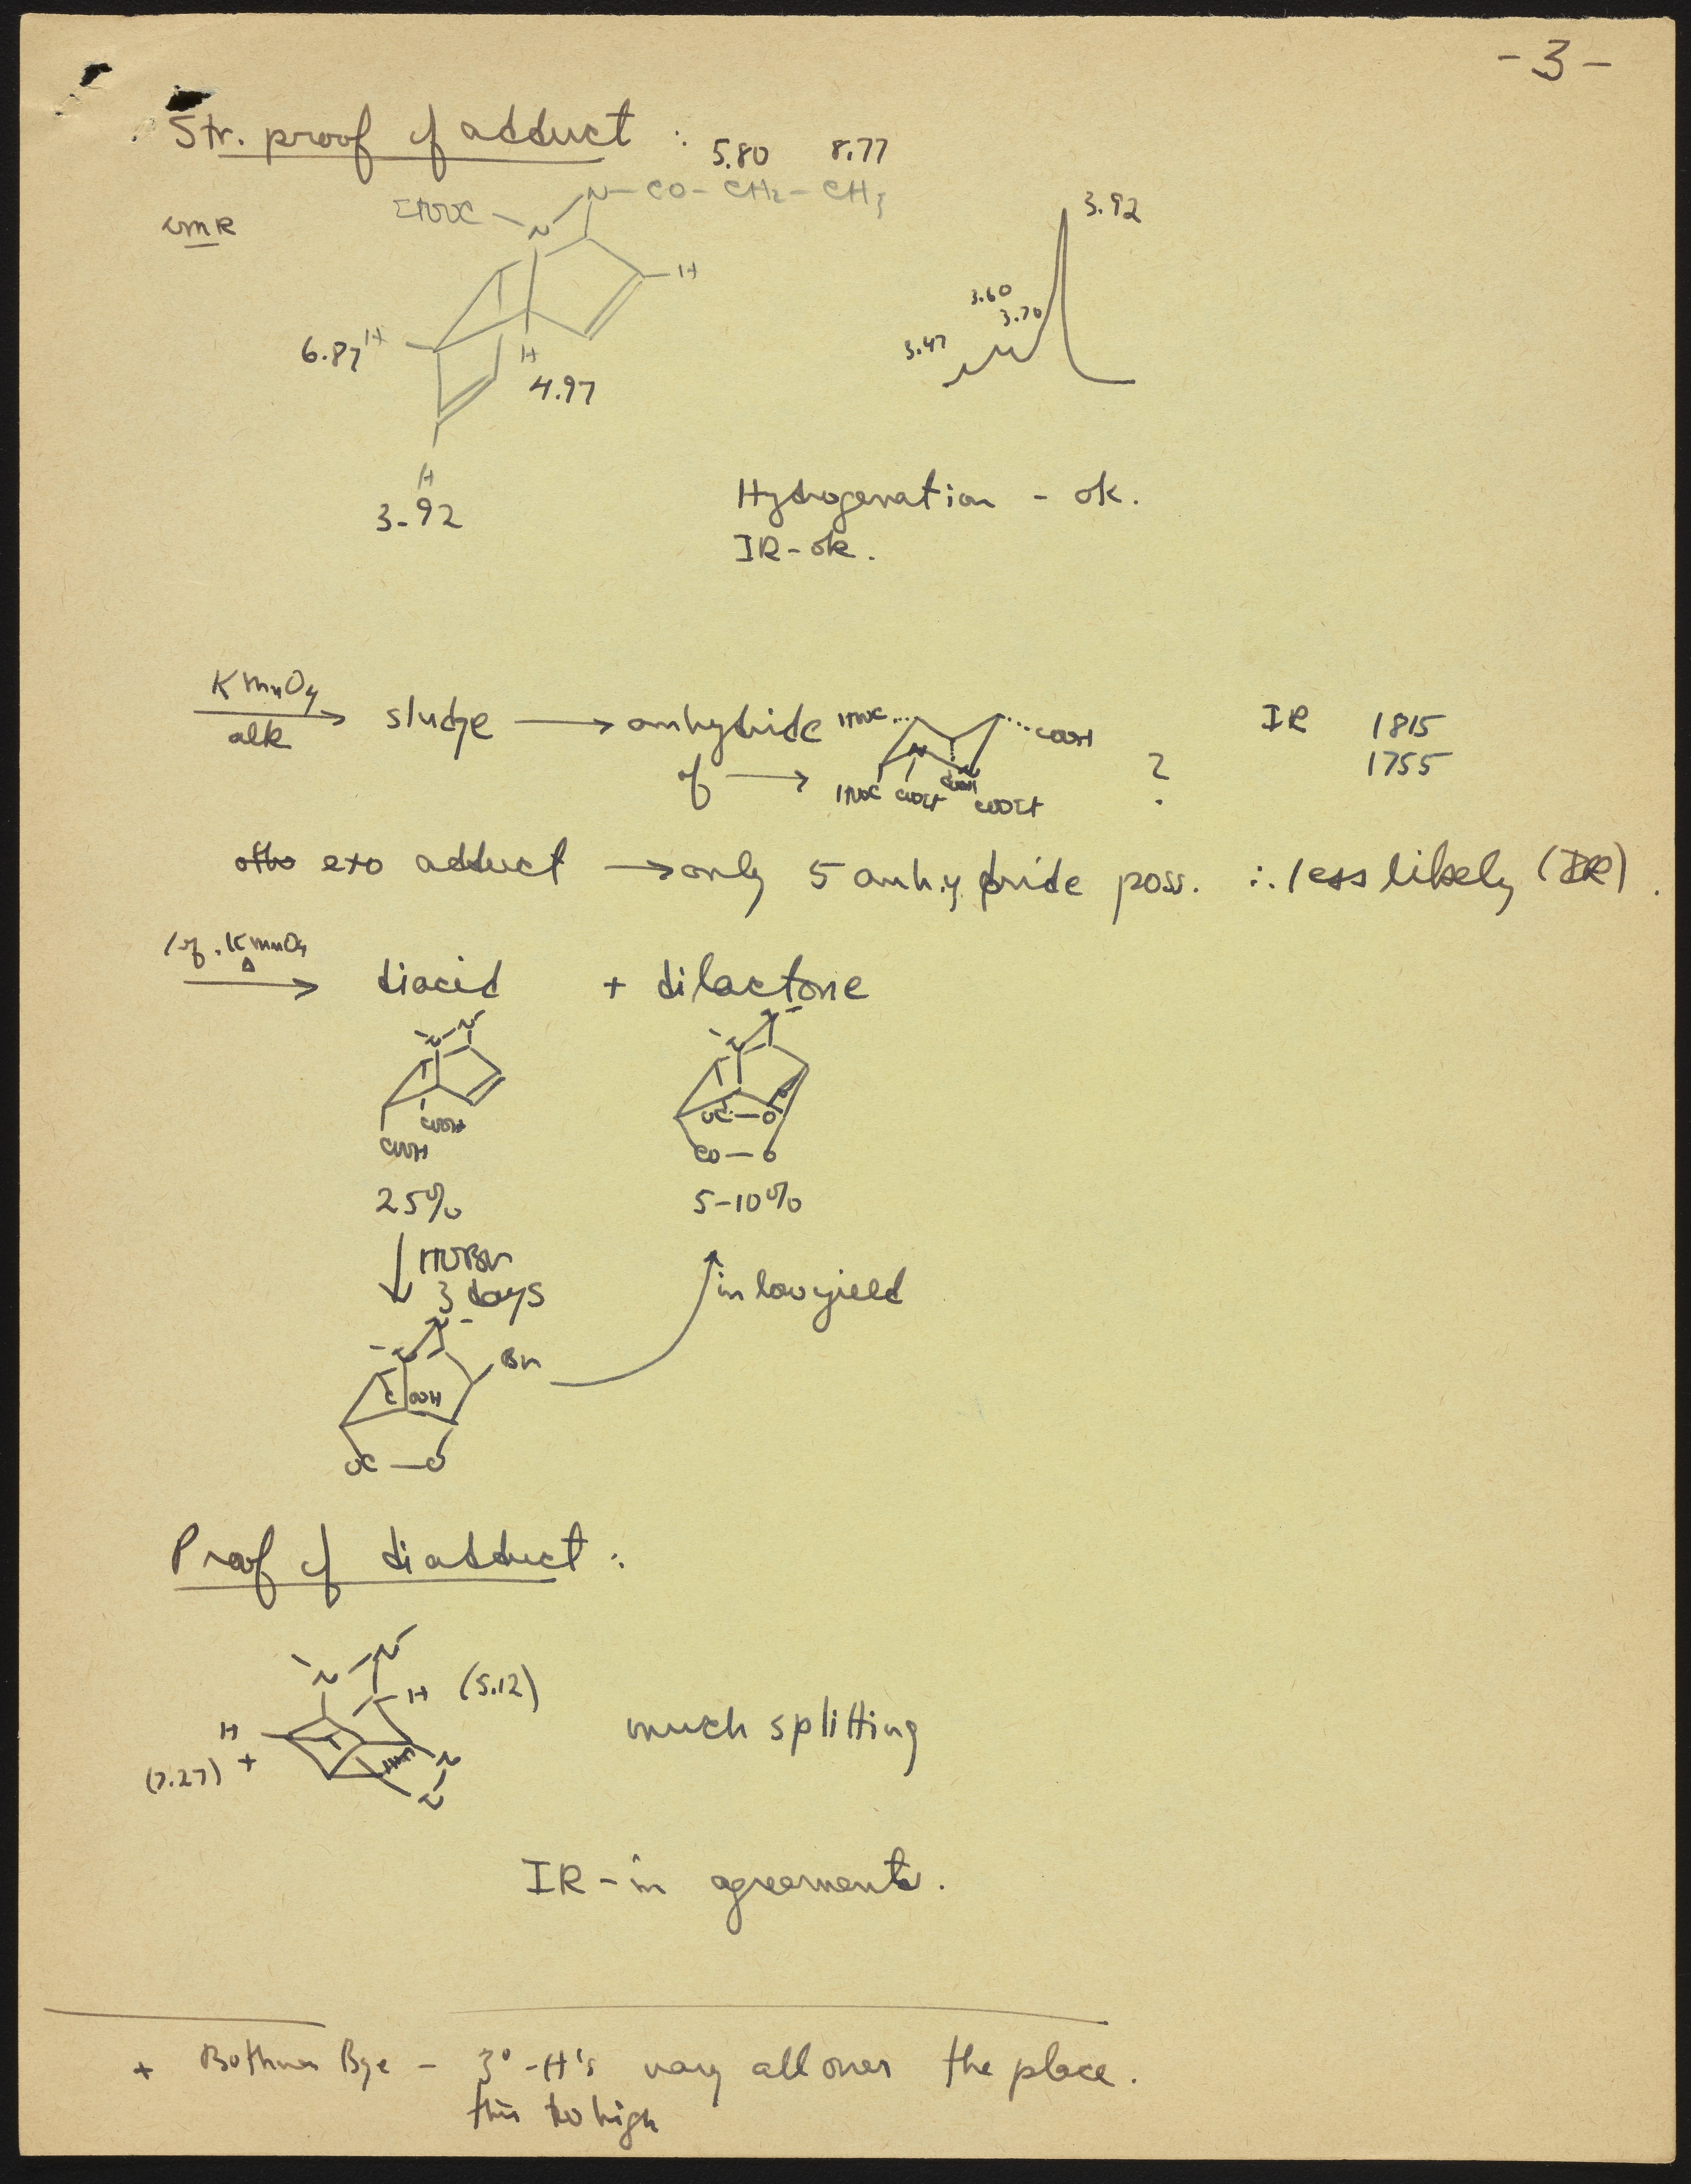 -3-
Str. proof of adduct :
5.80 8.77
N-CO-CH2-CH3
EtOOC - N
nmR
3.92
H
3.60
3.70
6.87 H
H
3.47
4.97
H
3.92
Hydrogenation - ok.
IR-ok.
KMnO4
alk
sludge → anhydride
of →
HOOC COOH
N N
HOOC COOEt COOH COOEt
?
IR 1815
1755
exo adduct → only 5 anhydride poss. ∴ less likely (IR).
1 eq. KMnO4
Δ
diacid + dilactone
N N
N N
COOH
COOH
OC-O
CO-O
25% 5-10%
HOBr
3 days
in low yield
N N
Br
COOH
OC-O
Proof of diadduct :
N-N
H (5.12)
H
+
(7.27)
N
N
much splitting
IR-in agreement.
+ Bothner Bye - 3°-H's vary all over the place.
this too high